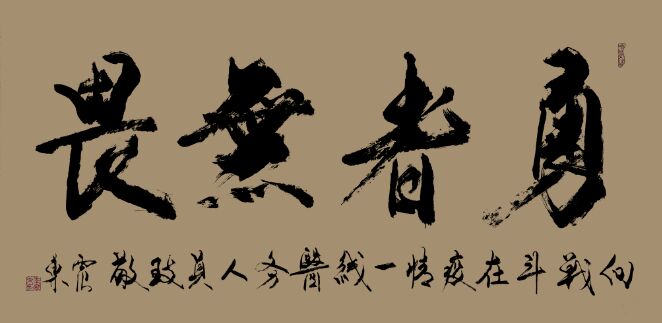 勇者無畏
向戰斗在疫情一綫醫务人員致敬霍東